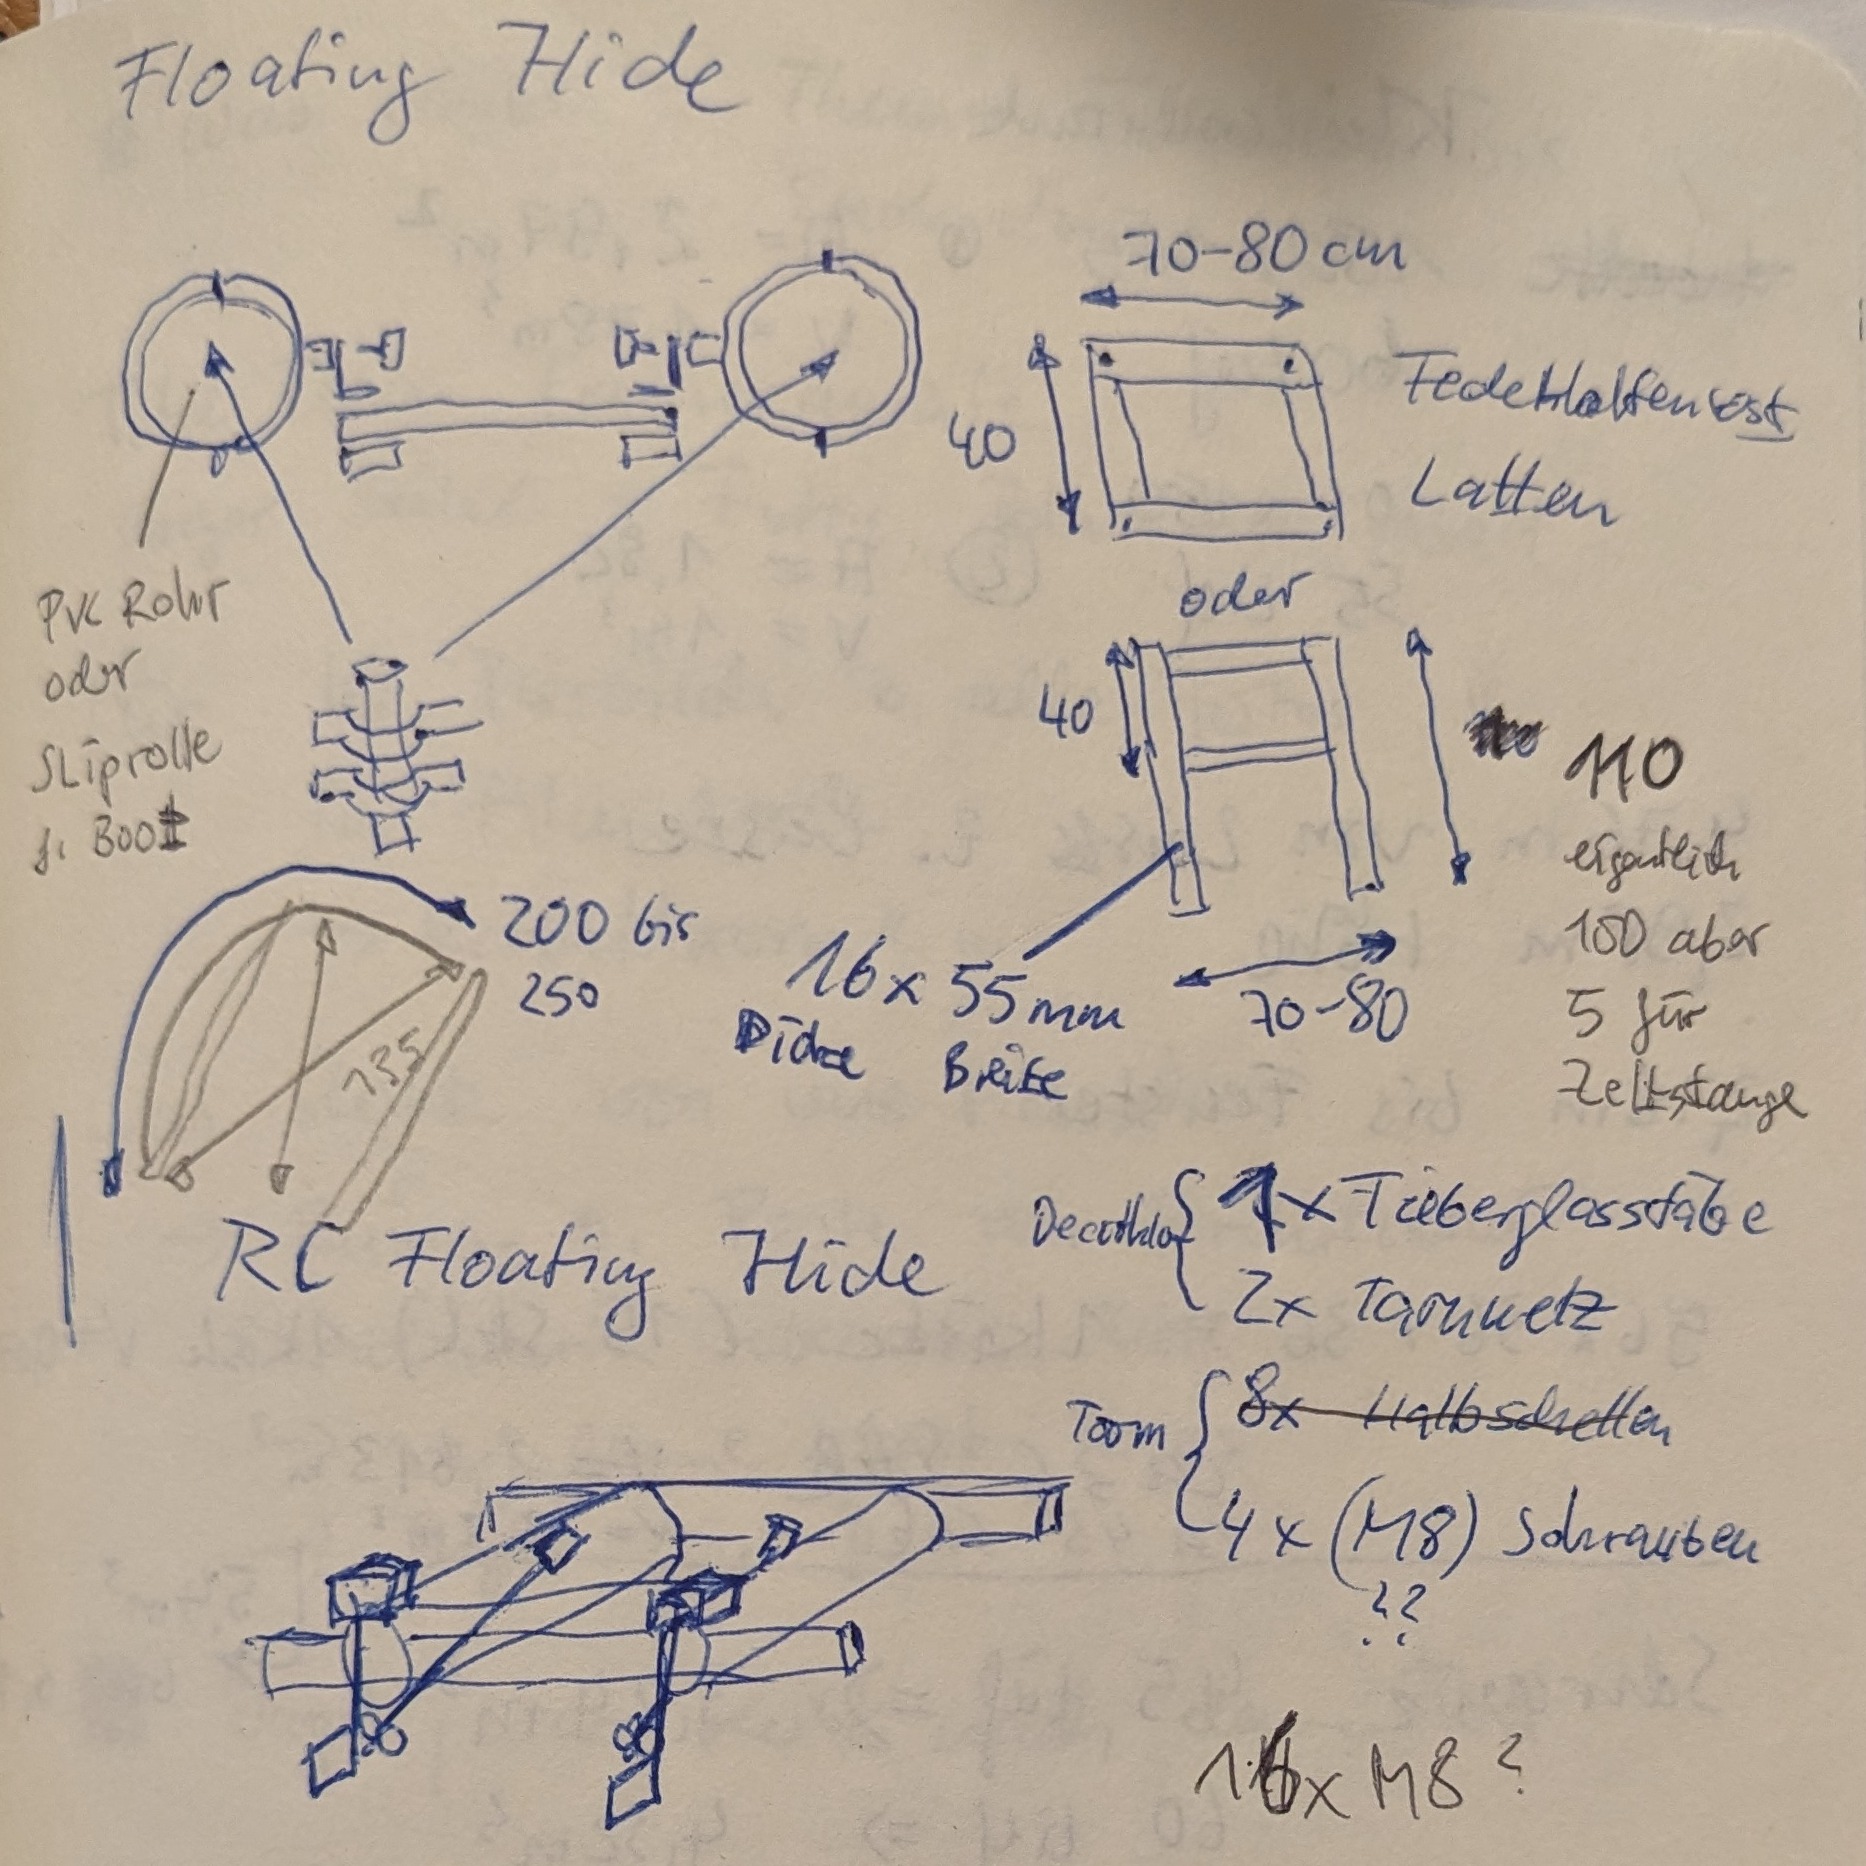 Floating Hide
70-80 cm
40
Latten
oder
PVC Rohr
oder
Sliprolle
f. Boot
40
110
eigentlich
100 aber
5 für
Zeltstange
200 bis
250
135
16 x 55 mm
Dicke Breite
70-80
RC Floating Hide
1x
2x Tarnnetz
Toom
8x Halbschellen
4x (M8) Schrauben
??
16x M8?